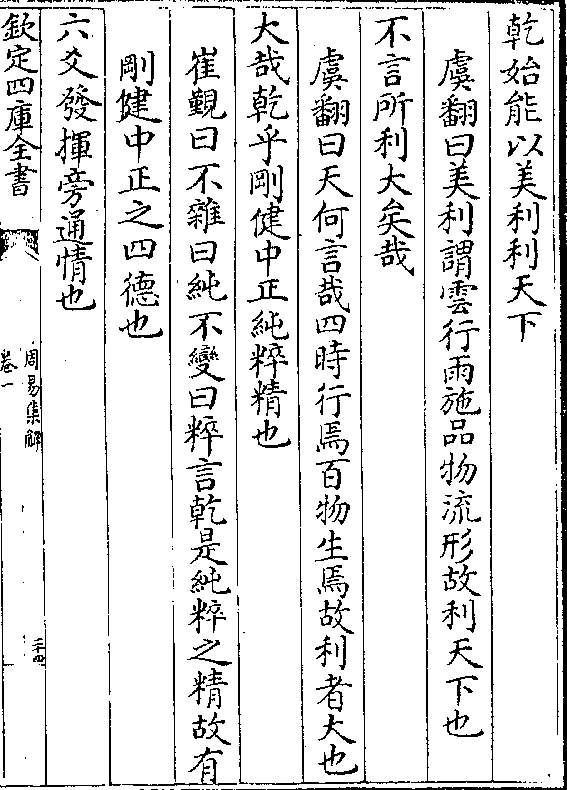 乾始能以美利利天下
虞翻曰美利謂雲行雨施品物流形故利天下也
不言所利大矣哉
虞翻曰天何言哉四時行焉百物生焉故利者大也
大哉乾乎剛健中正純粹精也
崔覲曰不雜曰純不變曰粹言乾是純粹之精故有
剛健中正之四德也
六爻發揮旁通情也
欽定四庫全書
周易集解
卷一
二十四